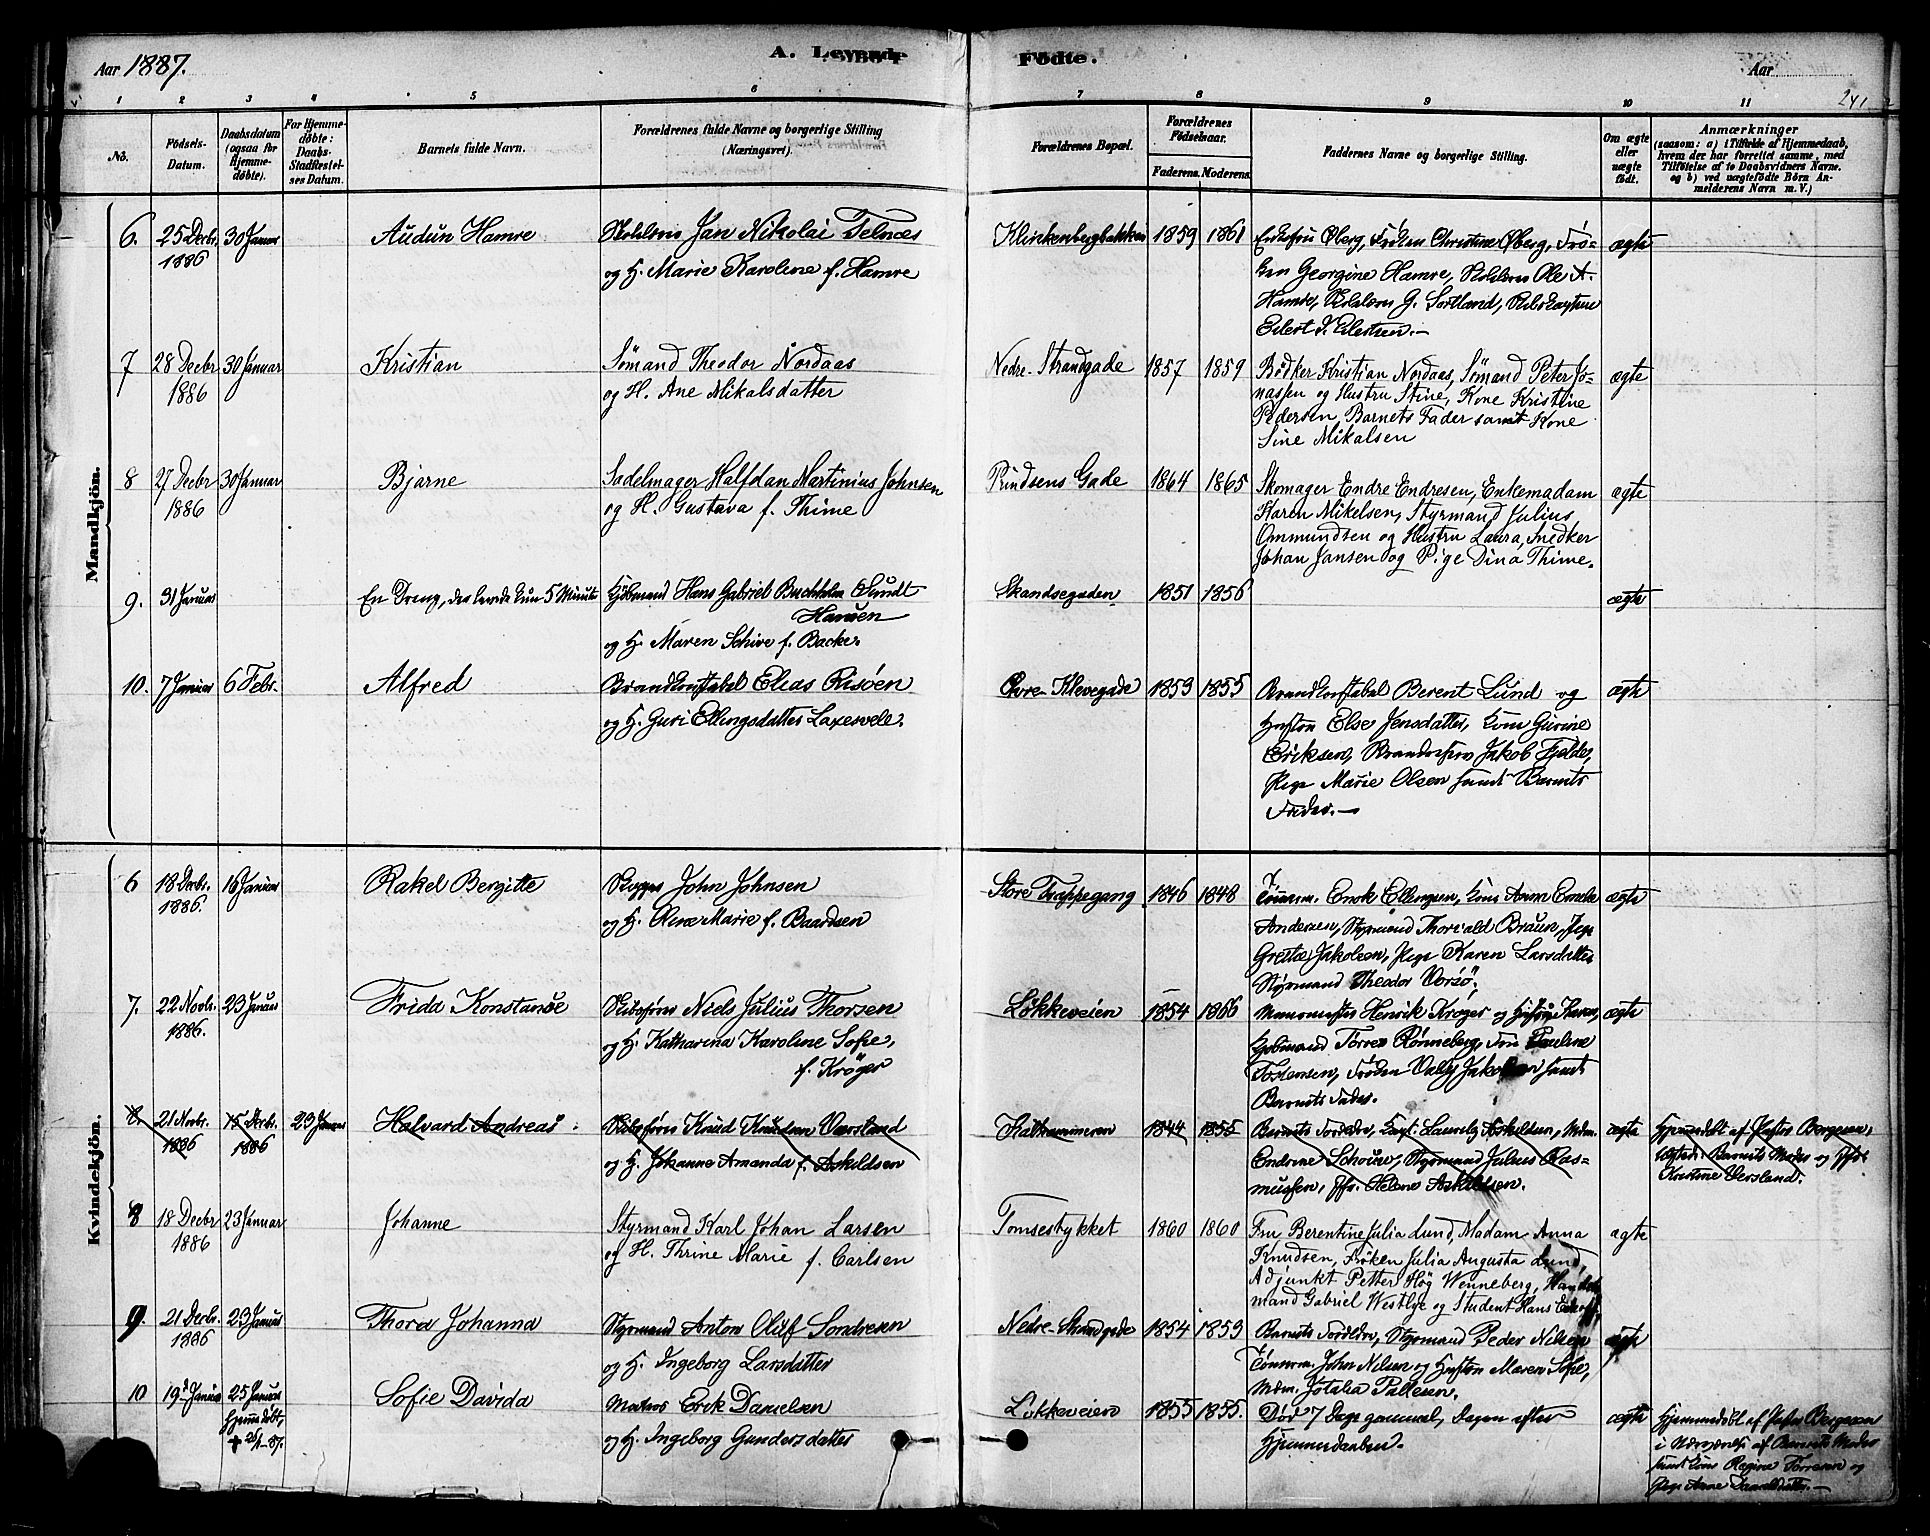 Aar 1887.
A. Levende Fødte.
Aar
241
1 2 3 4 5 6 7 8 9 10 11
No.
Fødsels-Datum.
Daabsdatum (ogsaa for Hjemme-døbte).
For Hjemme-døbte: Daabs-Stadfæstel-ses Datum.
Barnets fulde Navn.
Forældrenes fulde Navne og borgerlige Stilling (Næringsvei).
Forældrenes Bopæl.
Forældrenes Fødselsaar.
Faderens. Moderens.
Faddernes Navne og borgerlige Stilling.
Om ægte eller uægte født.
Anmærkninger
(saasom: a) i Tilfælde af Hjemmedaab, hvem der har forrettet samme, med Tilføielse af to Daabsvidners Navne. og b) ved uægtefødte Børn An-melderens Navn m. V.)
Mandkjön.
6. 25 Decbr. 30 Januar Audun Hamre Jan Nikolai Telnæs Klinkenbergbakken 1859 1861 Enkefru Øberg, Frøken Christine Øberg, Frø- ægte
1886 og H. Marie Karoline f. Hamre ken Georgine Hamre, Ole A.
Hamre, G. Sortland,
7 28 Decbr 30 Januar Kristian Sömand Theodor Nordaas Nedre Strandgade 1857 1859 Bödker Kristian Nordaas, Sömand Peter Jo- ægte
1886 og H. Ane Mikalsdatter nassen og Hustru Stine, Kone Kristine
Pedersen, Barnets Fader samt Kone
Sine Mikalsen
8 27 Decbr 30 Januar Bjarne Sadelmager Halfdan Martinius Johnsen Prindsens Gade 1864 1865 Skomager Endre Endresen, Enkemadam ægte
1886 og H. Gustava f. Thime Karen Mikelsen, Styrmand Julius
Ommundsen og Hustru Laura, Snedker
Johan Jansen og Pige Dina Thime.
9. 31 Januar En Dreng, der levede kun 5 Minuter Kjøbmand Hans Gabriel Buchholm Sundt Skandsegaden 1851 1856 ægte
Hansen
og H. Maren Schive f. Backer
10. 7 Januar 6 Febr. Alfred Brandkonstabel Elias Risøen Øvre Klevegade 1859 1855 Brandkonstabel Berent Lund og ægte
og H. Guri Ellingsdatter Laxesvele. Hustru Else Jensdatter, Kone Gurine
Eriksen, Jakob Fjelde,
Pige Marie Olsen samt Barnets
Fader.
Kvindekjön.
6 18 Decbr. 16 Januar Rakel Bergitte John Johnsen Store Trappegang 1846 1848 Tømmerm. Enok Ellingsen, Kone Anne ægte
1886. og H. Marie f. Baardsen Andersen, Styrmand Thorvald Bruun, Pige
Grethe Jakobsen, Pige Karen Larsdatter
Styrmand Theodor Vorsö.
7. 22 Novbr. 23 Januar Frida Konstanse Skibsfører Niels Julius Thorsen Løkkeveien 1854 1866 Henrik Kröger og Hustru ægte
1886. og H. Katharina Karoline Sofie, Kjøbmand Rønneberg, Fru Pauline
f. Kröger Torstensen, Frøken Valy Jakobsen samt
Barnets Fader.
8. 21 Novbr. 15 Decbr. 23 Januar Halvard Andreas Skibsfører Knud Knudsen Værsland 1844 1855 Barnets Forældre, Capt. Lauritz Askildsen, Mdm. ægte Hjemmedøbt af Pastor Bergesen,
1886 1886 og H. Johanne Amanda f. Askildsen Endrine Schouw, Styrmand Julius Ras- Barnets Moder og
mussen, Helene Askildsen. Kristine Versland.
8 18 Decbr 23 Januar Johanne Styrmand Karl Johan Larsen Tomsestykket 1860 1860 Fru Berentine Julia Lund, Madam Anna ægte
1886 og H. Thrine Marie f. Carlsen Knudsen, Frøken Julia Augusta Lund,
Adjunkt Petter Høg Wenneberg,
mand Gabriel Westlye og Student Hans
9. 21 Decbr. 23 Januar Thora Johanna Styrmand Anton Oluf Sondresen Nedre Strandgade 1854 1859 Barnets Forældre, Styrmand Peder Nilsen ægte
1886 og H. Ingeborg Larsdatter Tømmerm. John Nilsen og Hustru Maren Sofie,
Mdm. Jotalia Pallesen.
10 19d Januar 25 Januar Sofie Davida Matros Erik Danielsen Løkkeveien 1855 1855. Død 7 Dage gammel, Dagen efter ægte Hjemmedøbt af Pastor Bergesen
Hjemmedøbt, og H. Ingeborg Gundersdatter Hjemmedaaben. i Nærværelse af Barnets Moder
+ 26/1-87. samt Kone Regine Torresen og
Pige Anne Danielsdatter.